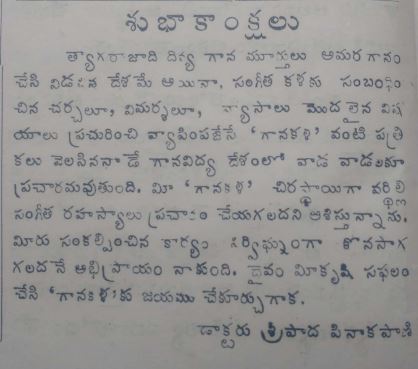 శుభాకాంక్షలు
త్యాగరాజాది దివ్య గాన మూర్తులు అమర గానం
చేసి నిడిచిన దేశమే అయినా, సంగీత కళకు సంబంధిం
చిన చర్చలూ, విమర్శలూ, వ్యాసాలు మొదలైన విష
యాలు ప్రచురించి వ్యాపింపజేసే 'గానకళ' వంటి పత్రి
కలు వెలసిననాడే గానవిద్య దేశంలో వాడ వాడలకూ
ప్రచారమవుతుంది. మీ 'గానకళ' చిరస్థాయిగా వర్థిల్లి
సంగీత రహస్యాలు ప్రచారం చేయగలదని ఆశిస్తున్నాను.
మీరు సంకల్పించిన కార్యం నిర్విఘ్నంగా కొనసాగ
గలదనే అభిప్రాయం నాకుంది. దైవం మీకృషి సఫలం
చేసి 'గానకళ'కు జయము చేకూర్చుగాక.
డాక్టరు శ్రీపాద పినాకపాణి